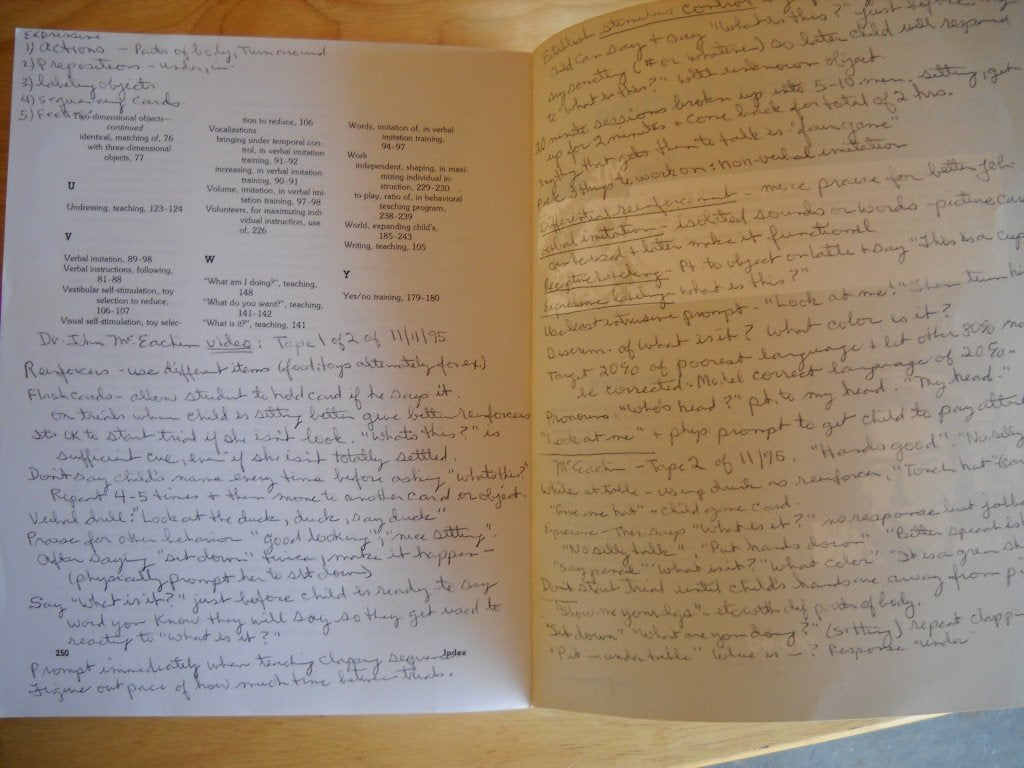 Expressive
1) Actions - Parts of body, Turn around
2) Prepositions - under, in
3) labeling objects
4) Sequencing Cards
5) Feed
Two-dimensional objects—
continued
identical, matching of, 76
with three-dimensional
objects, 77
U
Undressing, teaching, 123–124
V
Verbal imitation, 89–98
Verbal instructions, following,
81–88
Vestibular self-stimulation, toy
selection to reduce,
106–107
Visual self-stimulation, toy selec-
tion to reduce, 106
Vocalizations
bringing under temporal con-
trol, in verbal imitation
training, 91–92
increasing, in verbal imitation
training, 90–91
Volume, imitation, in verbal imi-
tation training, 97–98
Volunteers, for maximizing indi-
vidual instruction, use
of, 226
W
"What am I doing?", teaching,
148
"What do you want?", teaching,
141–142
"What is it?", teaching, 141
Words, imitation of, in verbal
imitation training,
94–97
Work
independent, shaping, in maxi-
mizing individual in-
struction, 229–230
to play, ratio of, in behavioral
teaching program,
238–239
World, expanding child's,
185–243
Writing, teaching, 105
Y
Yes/no training, 179–180
Dr. John McEachin video: Tape 1 of 2 of 11/11/95
Reinforcers - use different items (food, toys alternately for ex.)
Flash cards - allow student to hold card if he says it.
On trials when child is sitting better give better reinforcers
It's OK to start trial if she isn't look. "What's this?" is
sufficient cue, even if she isn't totally settled.
Don't say child's name every time before asking "whats this?"
Repeat 4-5 times + then move to another card or object.
Verbal drill: "Look at the duck, duck, say duck"
Praise for other behavior "Good looking", "nice sitting".
After saying "sit down" twice, make it happen -
(physically prompt her to sit down)
Say "What is it?" just before child is ready to say
word you know they will say so they get used to
reacting to "What is it?"
250 Index
Prompt immediately when teaching clapping sequence
Figure out pace of how much time between trials.
Establish stimulus control
child can say + say "What is this?" just before
say something (# or whatever) so later child will respond
to "What is this?" with unknown object.
minute sessions broken up into 5-10 min. sitting, get
up for 2 minutes + come back for total of 2 hrs.
anything that gets them to talk is "fair game"
Pick 3 things to work on: Non-verbal imitation
Differential reinforcement - more praise for better job
verbal imitation - isolated sounds or words - picture cards
can be used + later make it functional.
Receptive labeling - Pt. to object on table + say "This is a cup"
Expressive labeling - What is this?"
Use least intrusive prompt - "Look at me!" Then turn
Discrim. of What is it? What color is it?
Target 20% of poorest language + let other 80% not
be corrected. Model correct language of 20% -
Pronouns. "Who's head?" pt. to my head. "My head."
"Look at me" + phys prompt to get child to pay
McEachin - Tape 2 of 11/95. "Hands good". "No silly
While at table - using drink as reinforcer, "Touch hat"
"Give me hat" - child gave card.
Expressive - Ther. says "What is it?" no response but
"No silly talk", "Put hands down" "Better speech
"say pencil" "What is it?" "What color" "It is a green
Don't start trial until child's hands are away from
"Show me your legs" - etc. with dif parts of body.
"Sit down" "What are you doing?" (sitting) repeat
"Put - under table" Where is -? Response "under"